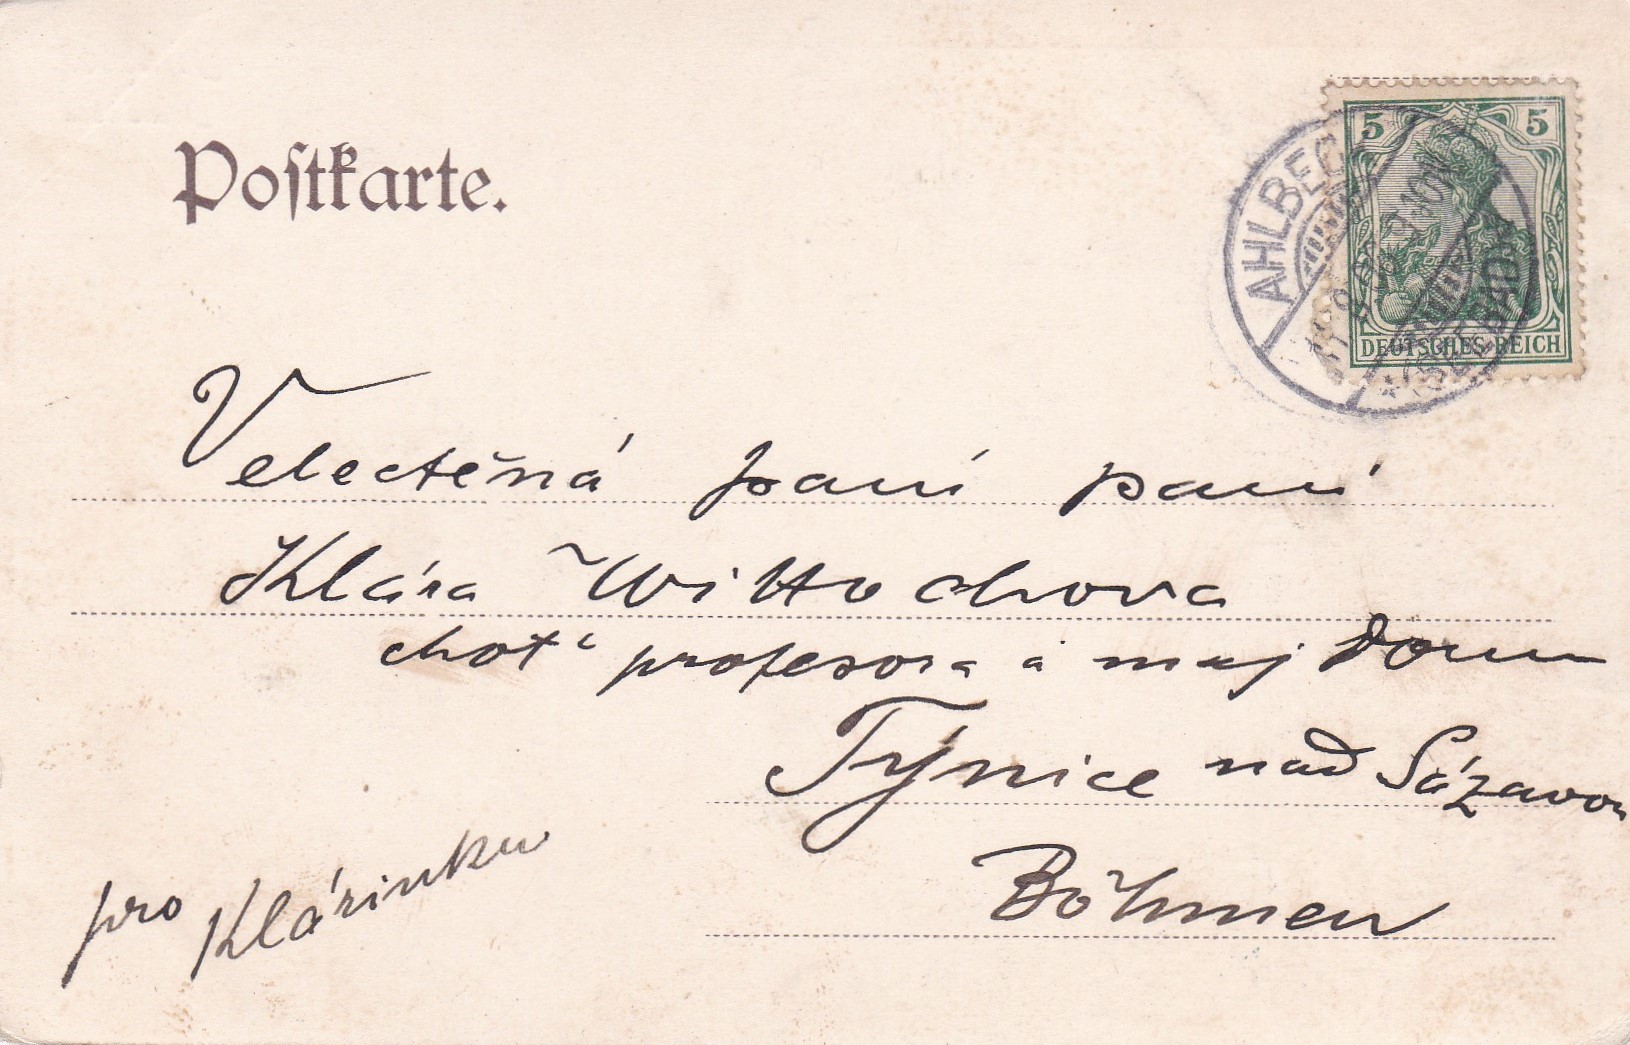 Postkarte.
5 5
DEUTSCHES REICH
AHLBECK
(SEEBAD)
Velectěná paní paní
Klára Wittochova
choť profesora a maj domu
Týnice nad Sázavou
Böhmen
pro Klárinku